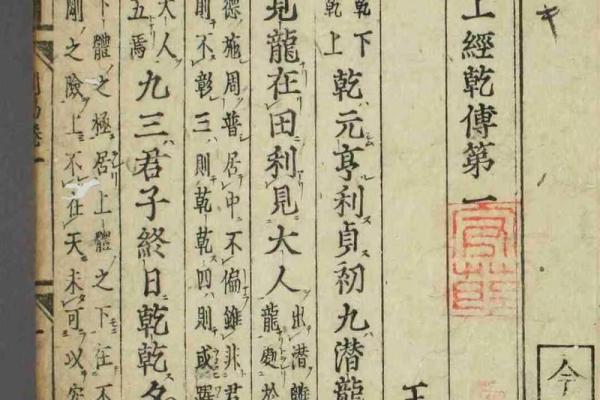 今
上經乾傳第一
王
乾下
乾上
乾元亨利貞初九潛龍
見龍在田利見大人
出潛離
龍處於
德施周普居中不偏雖非君
則不彰三則乾乾四則或躍
大人
五焉
九三君子終日乾乾夕
下體之極居上體之下在不
剛之險上不在天未可以安